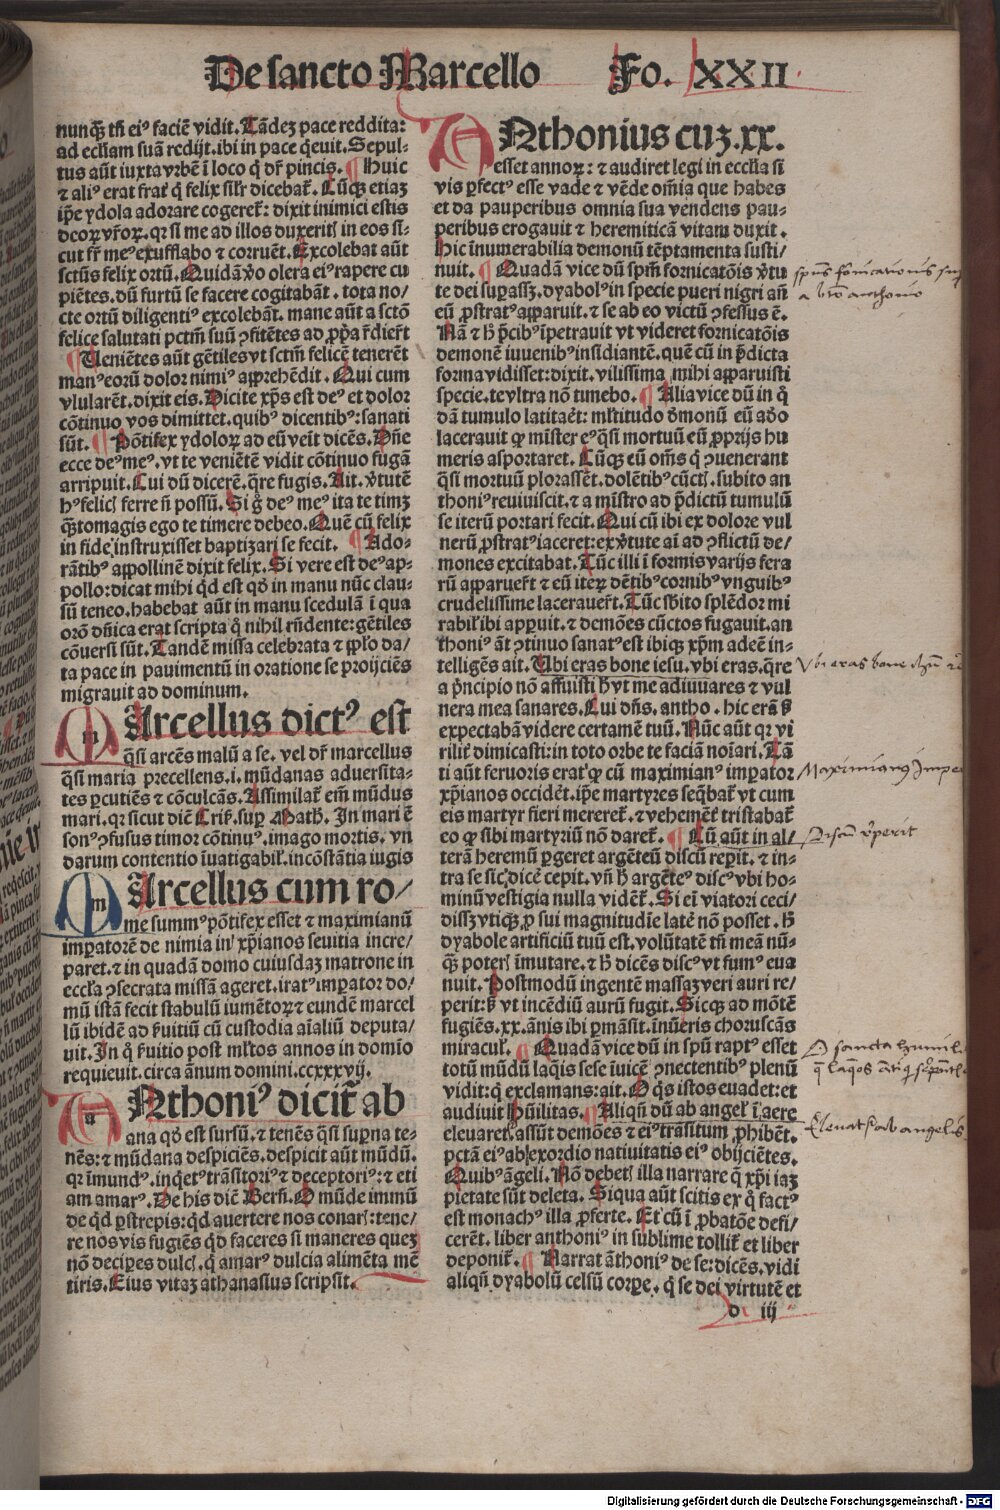 De sancto Marcello Fo. XXII
nunq̃ tñ ei⁹ faciē vidit. Tādeꝫ pace reddita:
ad eccl̄iam suā redijt. ibi in pace q̄euit. Sepul⸗
tus aūt iuxta vrbē ī loco q̄ dr̄ pincis. ¶ Huic
⁊ ali⁹ erat frat̄ q̄ felix sil̄r dicebat̄. Cūqꝫ etiaꝫ
ip̄e ydola adorare cogeret̄: dixit inimici estis
deoꝝ vr̄oꝝ. qꝛ si me ad illos duxerit̄ in eos si⸗
cut fr̄ me⁹ exufflabo ⁊ corruēt. Excolebat aūt
sctūs felix ortū. Quidā ꝟo olera ei⁹ rapere cu
piētes. dū furtū se facere cogitabāt. tota no/
cte ortū diligenti⁹ excolebāt. mane aūt a sctō
felice salutati pctm̄ suū ꝯfitētes ad ꝓp̄a r̄dier̄t
¶ Ueniētes aūt gētiles vt sctm̄ felicē tenerēt
man⁹ eorū dolor nimi⁹ apprehēdit. Qui cum
vlularēt. dixit eis. Dicite xp̄s est de⁹ et dolor
cōtinuo vos dimittet. quib⁹ dicentib⁹: sanati
sūt. ¶ Pōtifex ydoloꝝ ad eū veīt dicēs. Dn̄e
ecce de⁹ me⁹. vt te veniētē vidit cōtinuo fugā
arripuit. Cui dū dicerē. q̄re fugis. Ait. ꝟtutē
h⁹ felicꝭ ferre n̄ possū. Si g̊ de⁹ me⁹ ita te timꝫ
q̄ꝫtomagis ego te timere debeo. Quē cū felix
in fide instruxisset baptizari se fecit. ¶ Ado⸗
rātib⁹ appollinē dixit felix. Si vere est de⁹ ap⸗
pollo: dicat mihi qd̄ est qd̄ in manu nūc clau⸗
sū teneo. habebat aūt in manu scedulā ī qua
orō dn̄ica erat scripta q̄ nihil rn̄dente: gētiles
cōuersi sūt. Tandē missa celebrata ⁊ ꝓplo da/
ta pace in pauimentū in oratione se proijciēs
migrauit ad dominum.
MArcellus dict⁹ est
q̄si arcēs malū a se. vel dr̄ marcellus
q̄si maria precellens. i. mūdanas aduersita⸗
tes ꝑcutiēs ⁊ cōculcās. Assimilat̄ em̄ mūdus
mari. qꝛ sicut dicē Criſ. sup Math. In mari ē
son⁹ ꝯfusus timor cōtinu⁹. imago mortis. vn
darum contentio īuatigabil̄. incōstātia iugis
MArcellus cum ro/
me summ⁹ pōtifex esset ⁊ maximianū
imꝑatorē de nimia in xp̄ianos seuitia incre/
paret. ⁊ in quadā domo cuiusdaꝫ matrone in
eccl̄ia ꝯsecrata missā ageret. irat⁹ imꝑator do/
mū istā fecit stabulū iumētoꝝ ⁊ eundē marcel
lū ibidē ad s̄uitiū cū custodia aīaliū deputa/
uit. In q̄ s̄uitio post ml̄tos annos in domīo
requieuit. circa ānum domini. ccxxxvij.
ANthoni⁹ dicit̄ ab
ana qd̄ est sursū. ⁊ tenēs q̄si suꝑna te⸗
nēs: ⁊ mūdana despiciēs. despicit aūt mūdū.
qꝛ imund⁹. inq̄et⁹ trāsitori⁹ ⁊ deceptori⁹: ⁊ eti
am amar⁹. De his dicē Berñ. O mūde immū
de qd̄ ꝑstrepis: qd̄ auertere nos conarꝭ: tene/
re nos vis fugiēs qd̄ faceres si maneres queꝫ
nō deciꝑes dulcꝭ. q̄ amar⁹ dulcia alimēta mē
tiris. Eius vitaꝫ athanasius scripsit.
ANthonius cuꝫ. xx.
esset annoꝝ: ⁊ audiret legi in eccl̄ia si
vis ꝑfect⁹ esse vade ⁊ vēde om̄ia que habes
et da pauperibus omnia sua vendens pau⸗
peribus erogauit ⁊ heremiticā vitam duxit.
Hic īnumerabilia demonū tēptamenta susti/
nuit. ¶ Quadā vice dū spm̄ fornicatōis ꝟtu
te dei suꝑassꝫ. dyabol⁹ in specie pueri nigri añ
eū ꝓstrat⁹ apparuit. ⁊ se ab eo victū ꝯfessus ē.
Nā ⁊ h̄ p̄cib⁹ īpetrauit vt videret fornicatōis
demonē iuuenib⁹ insidiantē. quē cū in p̄dicta
forma vidisset: dixit. vilissima mihi apparuisti
specie. te vltra nō timebo. ¶ Alia vice dū in q̄
dā tumulo latitaēt: ml̄titudo dm̄onū eū adō
lacerauit ꝙ mīster e⁹ q̄si mortuū eū ꝓprijs hu
meris asportaret. Cūqꝫ eū om̄s q̄ ꝯuenerant
q̄si mortuū plorassēt. dolētib⁹ cūctꝭ. subito an
thoni⁹ reuiuiscit. ⁊ a mīstro ad p̄dictū tumulū
se iterū portari fecit. Qui cū ibi ex dolore vul
nerū ꝓstrat⁹ iaceret: ex ꝟtute aī ad ꝯflictū de/
mones excitabat. Tūc illi ī formis varijs fera
rū apparuer̄t ⁊ eū iteꝝ dētib⁹ cornib⁹ vnguib⁹
crudelissime lacerauer̄t. Tūc sbito splēdor mi
rabil̄ ibi apꝑuit. ⁊ demōes cūctos fugauit. an
thoni⁹ āt ꝯtinuo sanat⁹ est ibiqꝫ xp̄m adeē in⸗
telligēs ait. Ubi eras bone iesu. vbi eras. q̄re
a p̄ncipio nō affuisti h̄ vt me adiuuares ⁊ vul
nera mea sanares. Cui dn̄s. antho. hic erā s̄
expectabā videre certamē tuū. Nūc aūt qꝛ vi
rilit̄ dimicasti: in toto orbe te faciā noīari. Tā
ti aūt feruoris erat ꝙ cū maximian⁹ imꝑator
xp̄ianos occidēt. ip̄e martyres seq̄bat̄ vt cum
eis martyr fieri mereret̄. ⁊ vehemēt̄ tristabat̄
eo ꝙ sibi martyriū nō daret̄. ¶ Cū aūt in al/
terā heremū ꝑgeret argēteū discū reꝑit. ⁊ in⸗
tra se sic dicē cepit. vn̄ h̄ argēte⁹ disc⁹ vbi ho⸗
minū vestigia nulla vidēt̄. Si ei viatori ceci/
dissꝫ vtiqꝫ ꝓ sui magnitudīe latē nō posset. h̄
dyabole artificiū tuū est. volūtatē tñ meā nū⸗
q̄ꝫ poterꝭ īmutare. ⁊ h̄ dicēs disc⁹ vt fum⁹ eua
nuit. Postmodū ingentē massaꝫ veri auri re/
perit: s̄ vt incēdiū aurū fugit. Sicqꝫ ad mōtē
fugiēs. xx. ānis ibi ꝑmāsit. inūeris choruscās
miracul̄. ¶ Quadā vice dū in spū rapt⁹ esset
totū mūdū laq̄is sese īuicē ꝯnectentib⁹ plenū
vidit: q̄ exclamans: ait. O q̄s istos euadet: et
audiuit hūilitas. ¶ Aliqñ dū ab angel̄ ī aere
eleuaret̄. assūt demōes ⁊ ei⁹ trāsitum ꝓhibēt.
pctā ei⁹ ab exordio natiuitatis ei⁹ obijciētes.
Quib⁹ āgeli. Nō debetꝭ illa narrare q̄ xp̄i iaꝫ
pietate sūt deleta. Siqua aūt scitis ex q̄ fact⁹
est monach⁹ illa ꝓferte. Et cū ī ꝓbatōe defi/
cerēt. liber anthoni⁹ in sublime tollit̄ et liber
deponit̄. ¶ Narrat āthoni⁹ de se: dicēs. vidi
aliqñ dyabolū celsū corꝑe. q̄ se dei virtutē et
d iij
a bto anthonio
Vbi eras bone
Maximian⁹ Impe
Discū reperit
O sancta humil
Eleuat̄ ab angelis
Digitalisierung gefördert durch die Deutsche Forschungsgemeinschaft - DFG